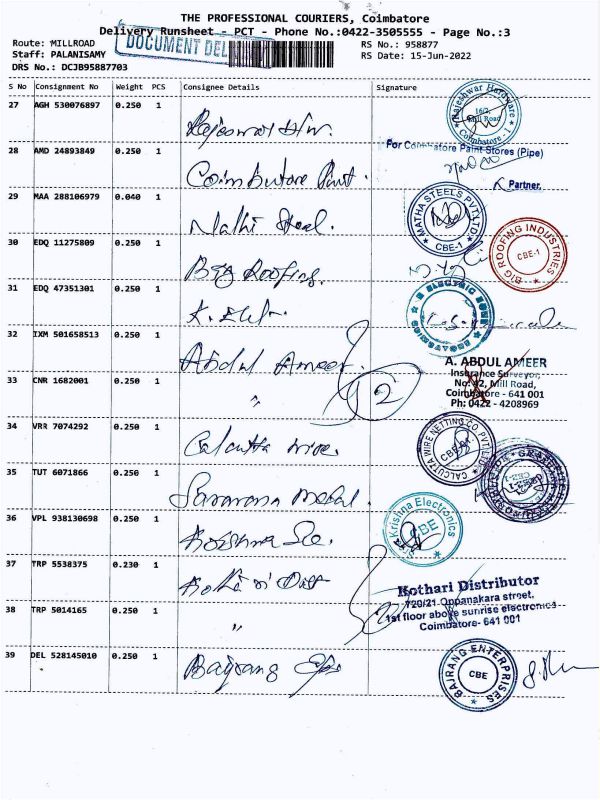 THE PROFESSIONAL COURIERS, Coimbatore
Delivery Runsheet - PCT - Phone No.:0422-3505555 - Page No.:3
Route: MILLROAD
DOCUMENT DEL
RS No.: 958877
Staff: PALANISAMY
RS Date: 15-Jun-2022
DRS No.: DCJB95887703
S No Consignment No Weight PCS Consignee Details Signature
27 AGH 530076897 0.250 1
Rajeswar H/w.
Rajeshwar Hardware
16/2, Mill Road
Coimbatore - 1
28 AMD 24893849 0.250 1
Coimbatore Paint.
For Coimbatore Paint Stores (Pipe)
Partner.
29 MAA 288106979 0.040 1
Mathi Steel.
MATHA STEELS PVT LTD
CBE-1
30 EDQ 11275809 0.250 1
Big Roofing.
BIG ROOFING INDUSTRIES
CBE-1
31 EDQ 47351301 0.250 1
ELECTRIC
32 IXM 501658513 0.250 1
Abdul Ameer.
A. ABDUL AMEER
Insurance Surveyor,
No: 12, Mill Road,
Coimbatore - 641 001
Ph: 0422 - 4208969
33 CNR 1682001 0.250 1
"
2
34 VRR 7074292 0.250 1
Calcutta wire.
CALCUTTA WIRE NETTING CO. PVT. LTD
35 TUT 6071866 0.250 1
Saravana Metal.
36 VPL 938130698 0.250 1
Krishna Ele.
Krishna Electronics
CBE
37 TRP 5538375 0.230 1
Kothari Dist
Kothari Distributor
720/21 Oppanakara street,
1st floor above sunrise electronics
Coimbatore- 641 001
38 TRP 5014165 0.250 1
"
39 DEL 528145010 0.250 1
Bajrang Eps
BAJRANG ENTERPRISES
CBE